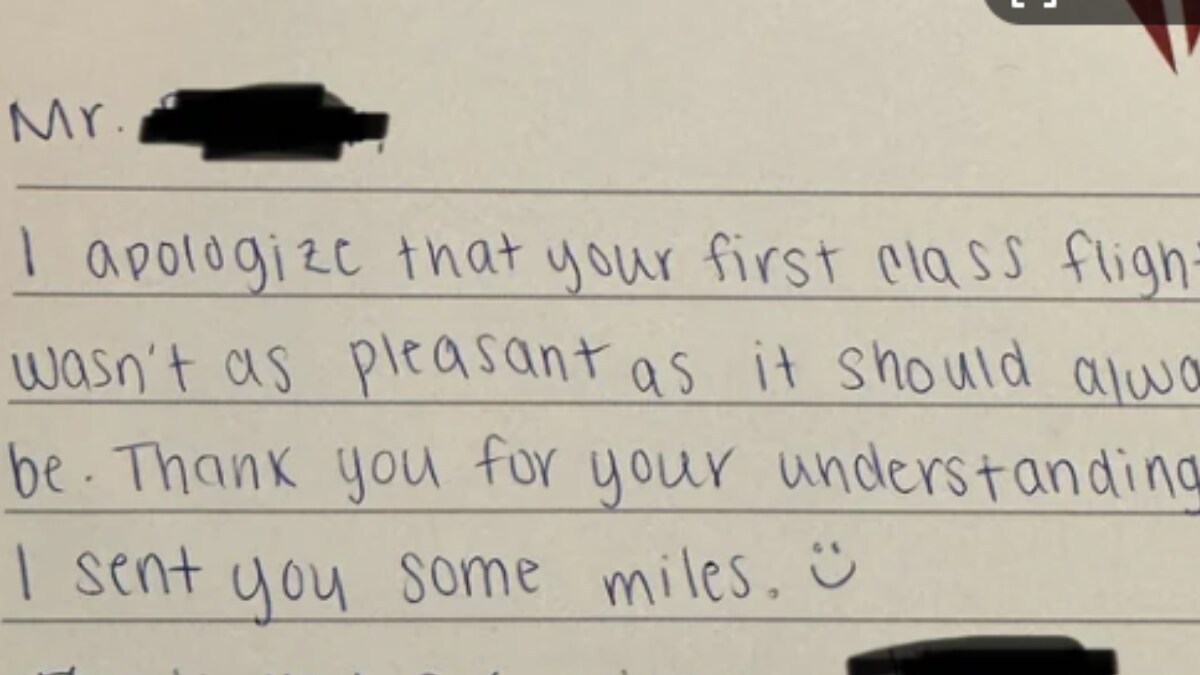 Mr.
I apologize that your first class fligh
wasn't as pleasant as it should alwa
be. Thank you for your understanding
I sent you some miles.